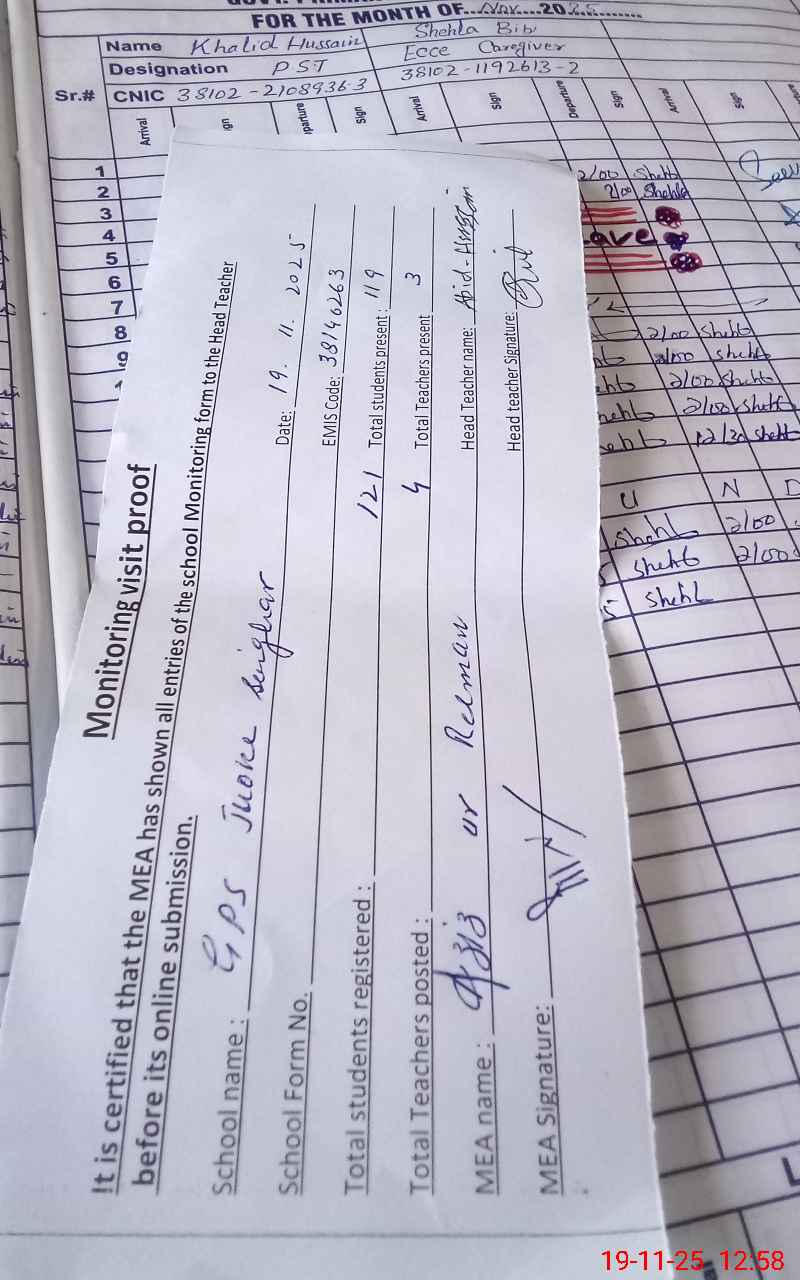 FOR THE MONTH OF...Nov...2025.......
Name Khalid Hussain Shehla Bibi
Designation PST Ecce Caregiver
Sr.# CNIC 38102-2108936-3 38102-1192613-2
Arrival Sign Departure Sign Arrival Sign Departure Sign Arrival Sign
1 2/00 Shehla
2 2/00 Shehla
3
4
5
6
7
8 2/00 Shehla
9 2/00 Shehla
2/00 Shehla
2/00 Shehla
12/30 Shehla
U N D
Shehla 2/00
Shehla 2/00
Shehla
Monitoring visit proof
It is certified that the MEA has shown all entries of the school Monitoring form to the Head Teacher
before its online submission.
School name : GPS
Date: 19. 11. 2025
School Form No. EMIS Code: 38140263
Total students registered : 121 Total students present : 119
Total Teachers posted : 4 Total Teachers present 3
MEA name : Aziz ur Rehman Head Teacher name: Abid Hussain
MEA Signature: Head teacher Signature:
19-11-25 12:58